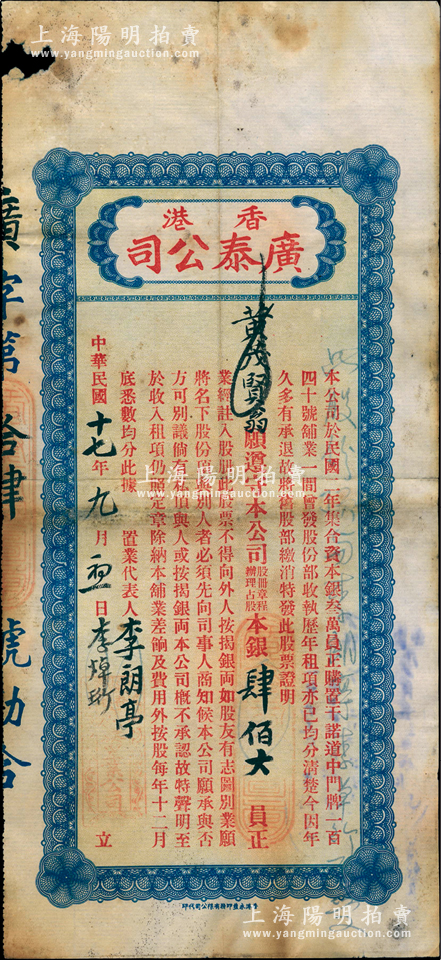 上海陽明拍賣
www.yangmingauction.com
香港
廣泰公司
本公司於民國二年集合資本銀叁萬員正購置干諾道中門牌一百
四十號舖業一間曾發股份部收執歷年租項亦已均分清楚今因年
久多有承退故將舊股部繳消特發此股票證明
黃茂賢翁願遵守本公司股冊章程辦理占股本銀肆佰大員正
業經註入股冊此股票不得向外人按揭銀両如股友有志圖別業願
將名下股份退與別人者必須先向司事人商知候本公司願承與否
方可別議倘私相退與人或按揭銀両本公司概不承認故特聲明至
於收入租項仍照定章除納本舖業差餉及費用外按股每年十二月
底悉數均分此據
置業代表人李朗亭
李焯珩
中華民國十七年九月 日立
廣字第拾肆號
上海陽明拍賣
www.yangmingauction.com